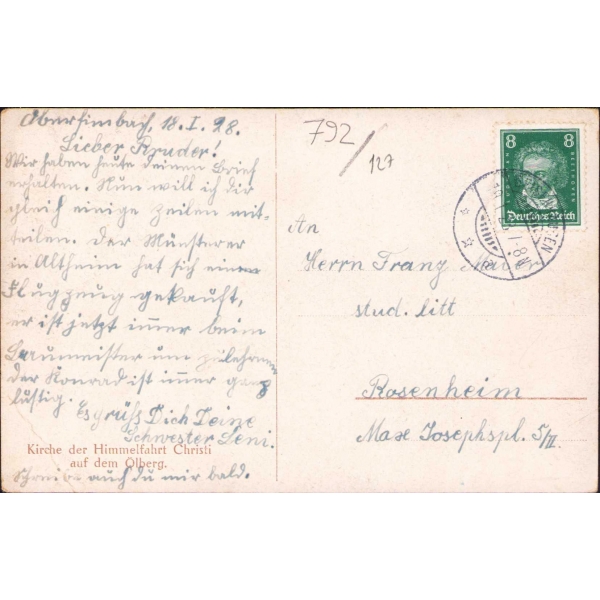 Obersimbach, 18.I.28.
Lieber Bruder!
Wir haben heute deinen Brief
erhalten. Nun will ich dir
gleich einige zeilen mit-
teilen. Der Münsterer
in Altheim hat sich einen
Flugzeug gekauft,
er ist jetzt immer beim
Braumeister um zulehrnen
der Konrad ist immer ganz
lustig.
Es grüßt Dich Deine
Schwester Leni.
Kirche der Himmelfahrt Christi
auf dem Ölberg.
Schreibe auch du mir bald.
792
/ 127
8 8
Deutsches Reich
An
Herrn Franz Maier
stud. litt
Rosenheim
Max Josephspl. 5/II